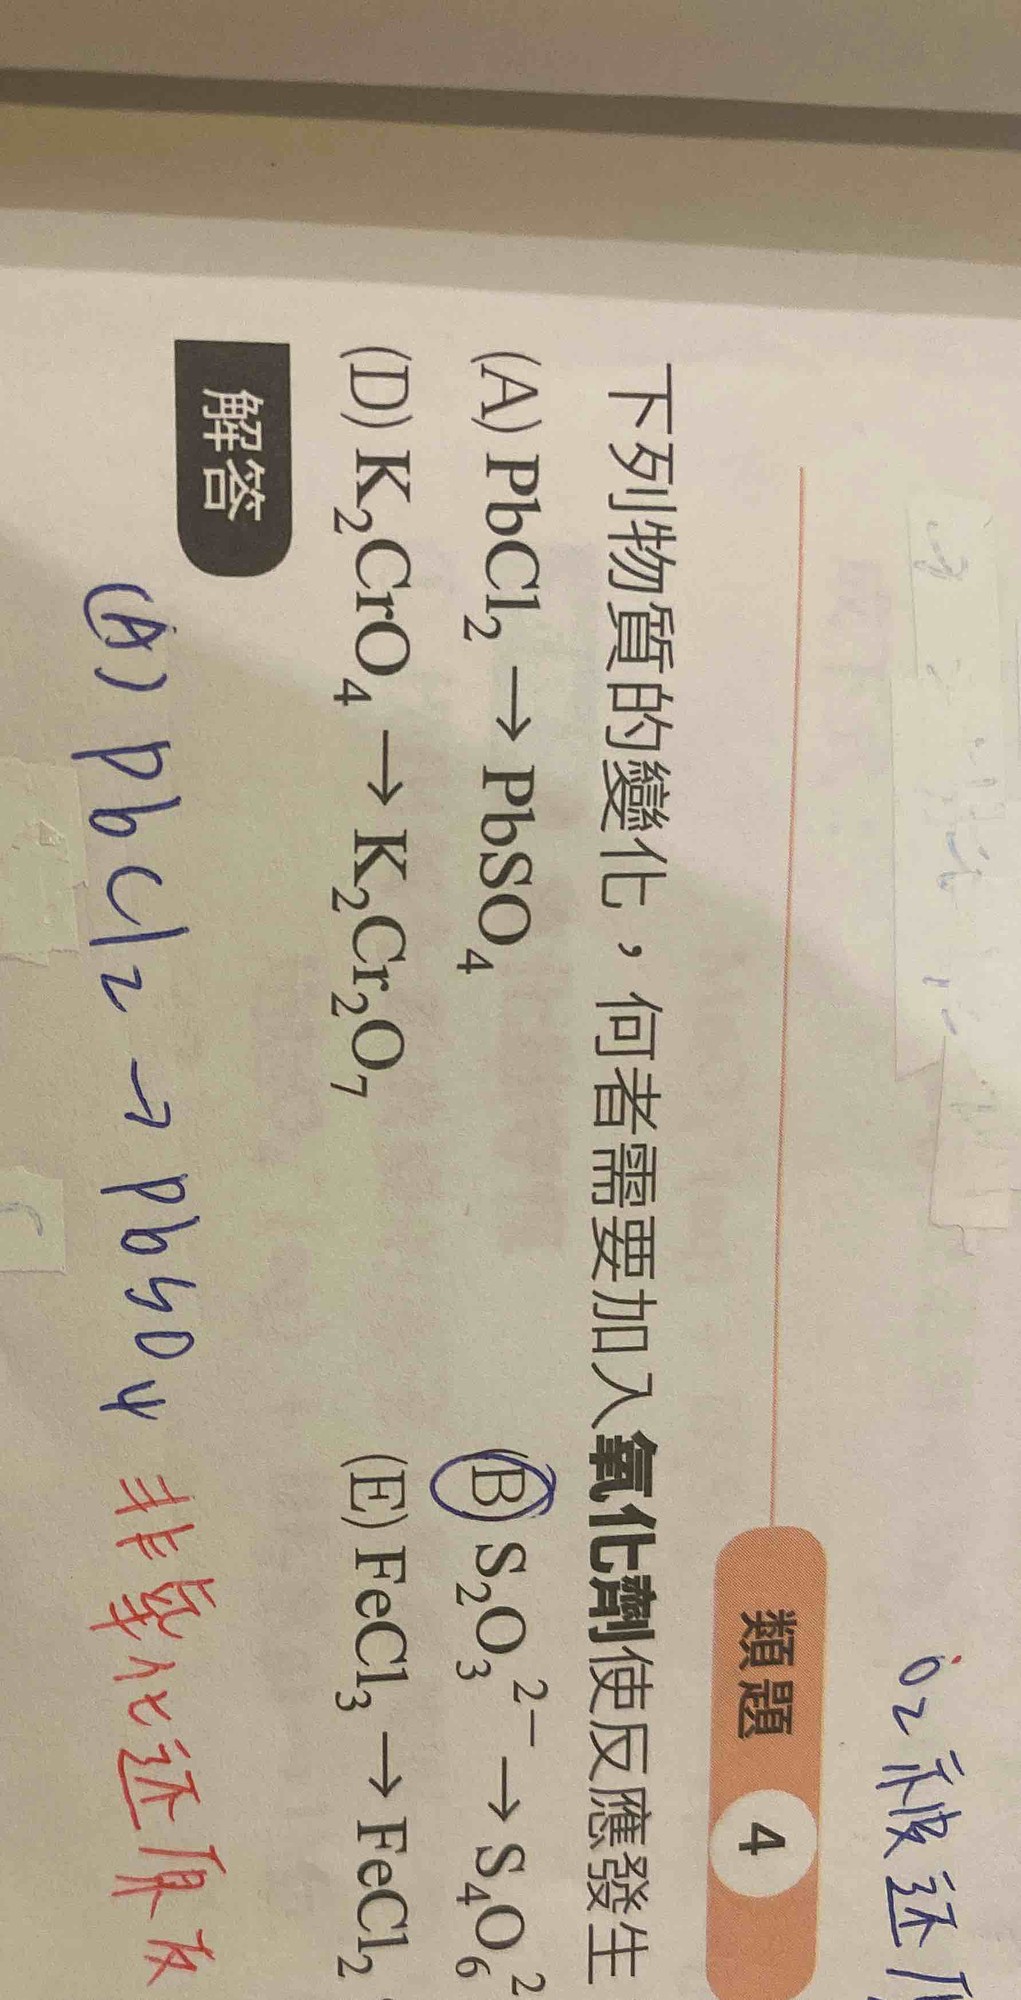 O₂被还
類題 4
下列物質的變化,何者需要加入氧化劑使反應發生
(A) PbCl₂ → PbSO₄ (B) S₂O₃²⁻ → S₄O₆²
(D) K₂CrO₄ → K₂Cr₂O₇ (E) FeCl₃ → FeCl₂
解答
(A) PbCl₂ → PbSO₄ 非氧化还原反